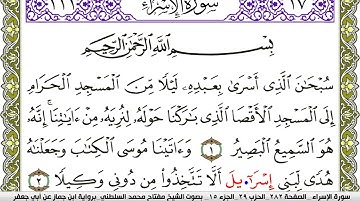 ١١١ سُورَةُ الإِسْرَاءِ ١٧
بِسْمِ اللَّهِ الرَّحْمَٰنِ الرَّحِيمِ
سُبْحَانَ الَّذِي أَسْرَىٰ بِعَبْدِهِ لَيْلًا مِنَ الْمَسْجِدِ الْحَرَامِ
إِلَى الْمَسْجِدِ الْأَقْصَا الَّذِي بَارَكْنَا حَوْلَهُ لِنُرِيَهُ مِنْ ءَايَاتِنَا إِنَّهُ
هُوَ السَّمِيعُ الْبَصِيرُ ١ وَءَاتَيْنَا مُوسَى الْكِتَابَ وَجَعَلْنَاهُ
هُدًى لِبَنِي إِسْرَاءِيلَ أَلَّا تَتَّخِذُوا مِنْ دُونِي وَكِيلًا ٢
سورة الإسراء الصفحة ٢٨٢ الحزب ٢٩ الجزء ١٥ بصوت الشيخ مفتاح محمد السلطني برواية ابن جماز عن أبي جعفر